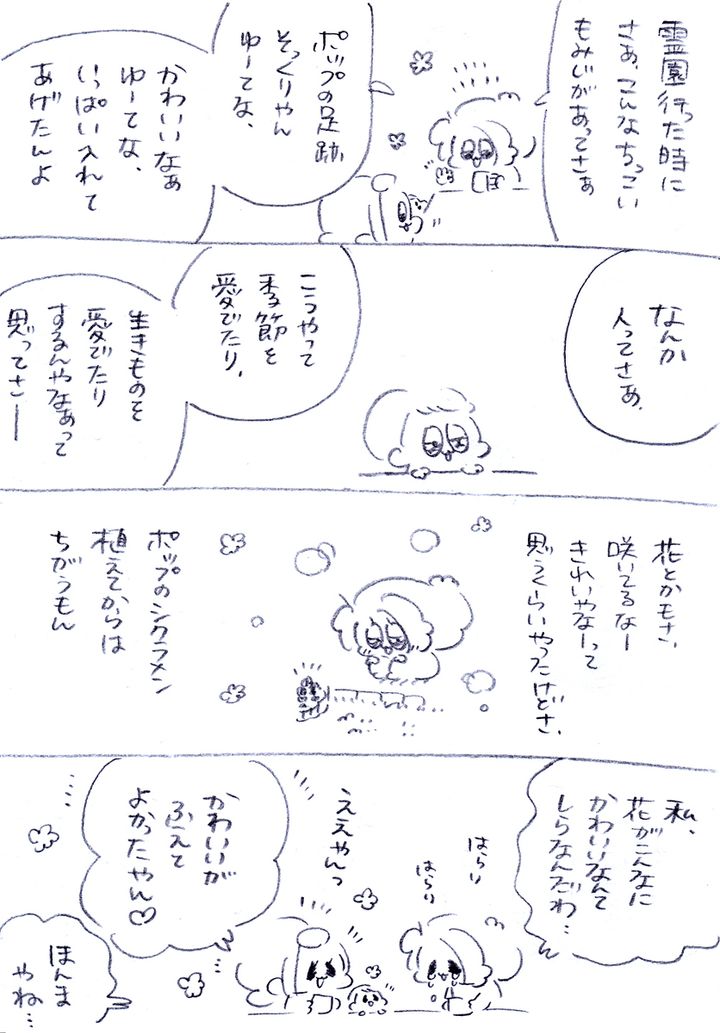 霊園行った時に
さぁ、こんなちっこい
もみじがあってさぁ
ポップの足跡
そっくりやん
ゆーてな、
かわいいなぁ
ゆーてな、
いっぱい入れて
あげたんよ
なんか
人ってさぁ、
こうやって
季節を
愛でたり、
生きものを
愛でたり
するんやなあって
思ってさー
花とかもさ、
咲いてるなー
きれいやなーって
思うくらいやったけどさ、
ポップのシクラメン
植えてからは
ちがうもん
私、
花がこんなに
かわいいなんて
しらなんだわ…
はらり
はらり
ええやんっ
かわいいが
ふえて
よかったやん♡
ほんま
やね…